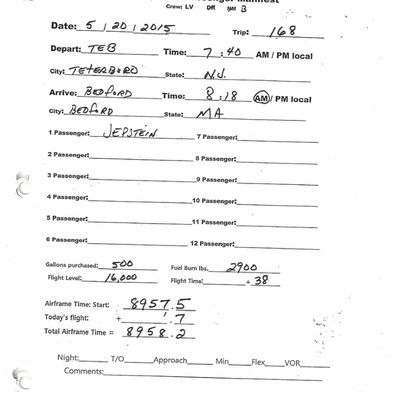 Manifest
Crew: LV DR NM B
Date: 5 / 20 / 2015 Trip: 168
Depart: TEB Time: 7:40 AM / PM local
City: TETERBORO State: N.J.
Arrive: BEDFORD Time: 8:18 AM / PM local
City: BEDFORD State: MA
1 Passenger: JEPSTEIN 7 Passenger:
2 Passenger: 8 Passenger:
3 Passenger: 9 Passenger:
4 Passenger: 10 Passenger:
5 Passenger: 11 Passenger:
6 Passenger: 12 Passenger:
Gallons purchased: 500 Fuel Burn lbs. 2900
Flight Level: 16,000 Flight Time: + 38
Airframe Time: Start: 8957.5
Today's flight: + .7
Total Airframe Time = 8958.2
Night: T/O Approach Min Flex VOR
Comments: